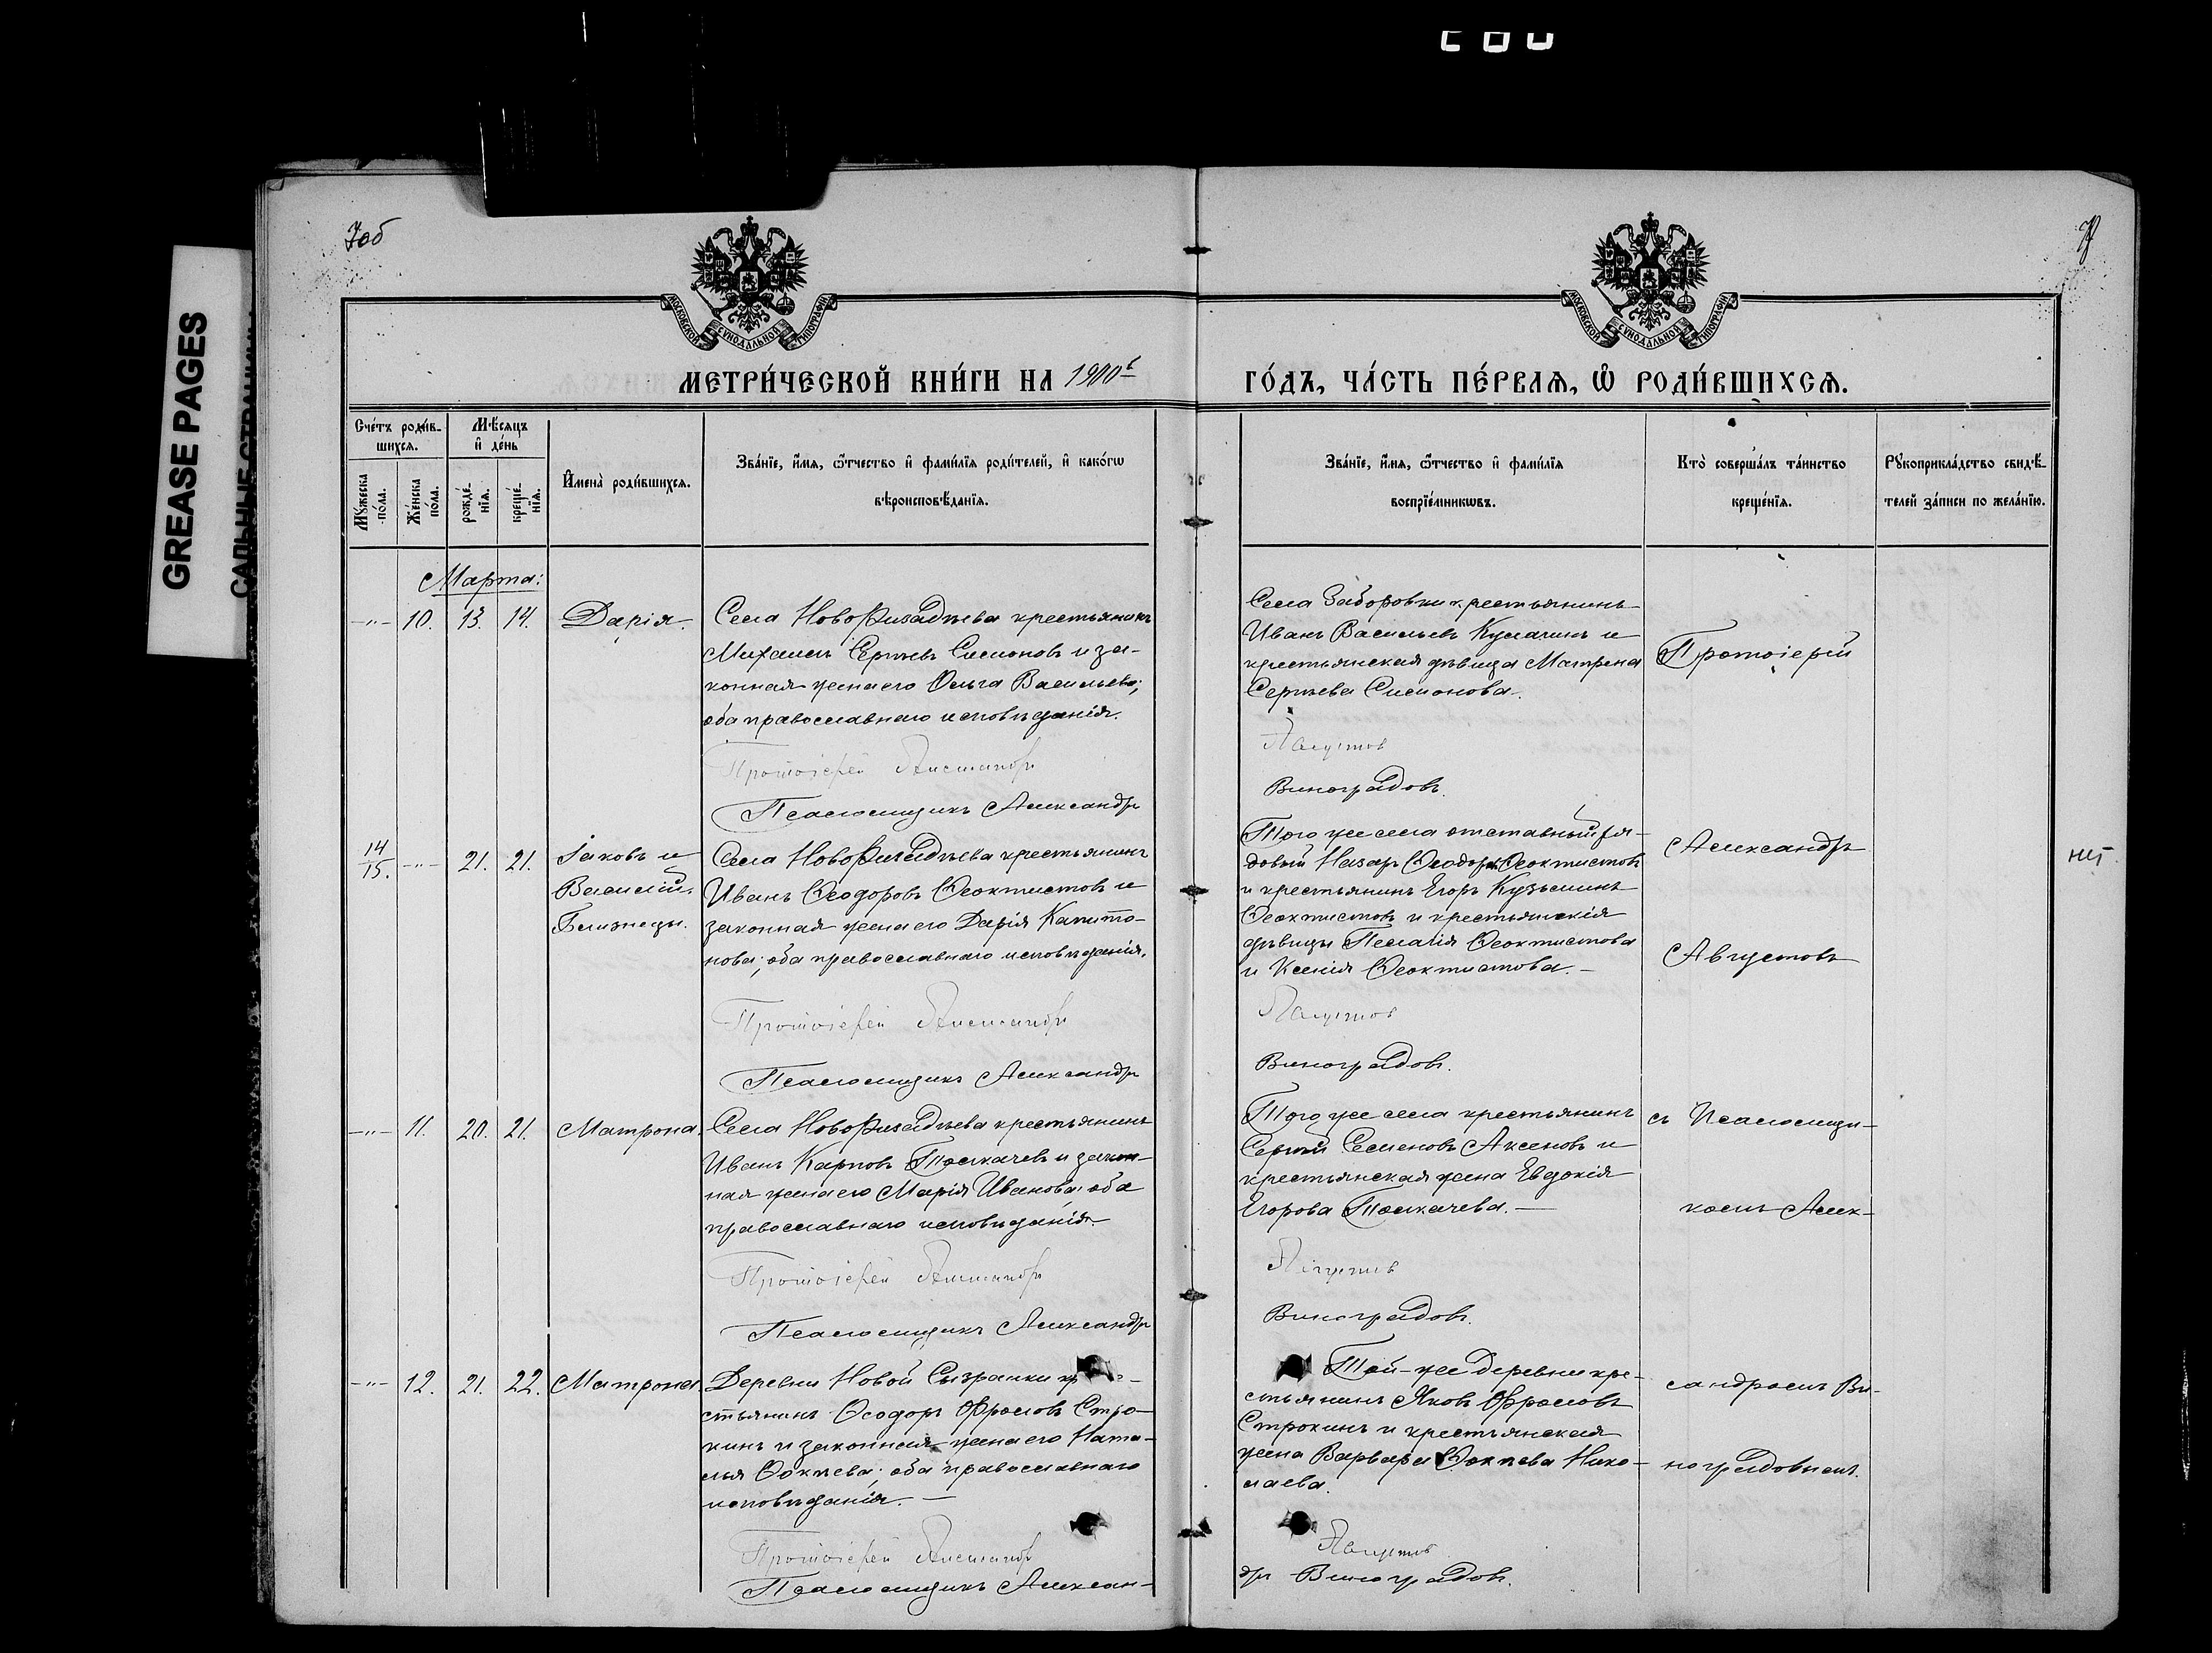 7об
МЕТРИ́ЧЕСКОЙ КНИ́ГИ НА 1900й
ГО́ДЪ, ЧА́СТЬ ПЕ́РВАѦ, Ѽ РОДИ́ВШИХСѦ.
МОСКОВСКОЙ СѴНОДАЛЬНОЙ ТИПОГРАФІИ
МОСКОВСКОЙ СѴНОДАЛЬНОЙ ТИПОГРАФІИ
GREASE PAGES
САЛЬНЫЕ СТРАНИЦЫ
Сче́тъ роди́в-
шихсѧ.
Мꙋ́жеска по́ла.
Же́нска по́ла.
Мѣ́сѧцъ
и҆ де́нь
рожде́-
нїѧ.
креще́-
нїѧ.
И҆мена̀ роди́вшихсѧ.
Зва́нїе, и҆́мѧ, ѻ҆́тчество и҆ фамилїѧ роди́телей, и҆ како́гѡ
вѣроисповѣ́данїѧ.
Зва́нїе, и҆́мѧ, ѻ҆́тчество и҆ фами́лїѧ
воспрїе́мникѡвъ.
Кто̀ соверша́лъ та́инство
креще́нїѧ.
Рꙋкоприкла́дство свидѣ́-
телей за́писи по жела́нїю.
Марта:
-"- 10. 13. 14. Дарія.
Села Новофизадѣева крестьянинъ
Михаилъ Сергѣевъ Симоновъ и за-
конная жена его Ольга Васильева;
оба православнаго исповѣданія.
Протоіерей Александръ
Псаломщикъ Александръ
Села Заборовки крестьянинъ
Иванъ Васильевъ Кулагинъ и
крестьянская дѣвица Матрена
Сергѣева Симонова.
Августовъ
Виноградовъ.
Протоіерей
14
15. -"- 21. 21. Іаковъ и
Василій.
Близнецы.
Села Новофизадѣева крестьянинъ
Иванъ Ѳеодоровъ Ѳеоктистовъ и
законная жена его Дарія Капито-
нова; оба православнаго исповѣданія.
Протоіерей Александръ
Псаломщикъ Александръ
Того же села отставный ря-
довый Назаръ Ѳеодоровъ Ѳеоктистовъ
и крестьянинъ Егоръ Кузьминъ
Ѳеоктистовъ и крестьянскія
дѣвицы Пелагія Ѳеоктистова
и Ксенія Ѳеоктистова.-
Августовъ
Виноградовъ.
Александръ
Августовъ
-"- 11. 20. 21. Матрона.
Села Новофизадѣева крестьянинъ
Иванъ Карповъ Толкачевъ и закон-
ная жена его Марія Иванова; оба
православнаго исповѣданія
Протоіерей Александръ
Псаломщикъ Александръ
Того же села крестьянинъ
Сергѣй Семеновъ Аксеновъ и
крестьянская жена Евдокія
Егорова Толкачева.-
Августовъ
Виноградовъ.
съ Псаломщи-
комъ Алек-
-"- 12. 21. 22. Матрона
Деревни Новой Сызранки кре-
стьянинъ Ѳеодоръ Фроловъ Стро-
кинъ и законная жена его Ната-
лья Ѳокиева; оба православнаго
исповѣданія.-
Протоіерей Александръ
Псаломщикъ Алексан-
Той-же деревни кре-
стьянинъ Яковъ Фроловъ
Строкинъ и крестьянская
жена Варвара Ѳокиева Нико-
лаева.
Августовъ
дръ Виноградовъ.
сандромъ Ви-
ноградовымъ.